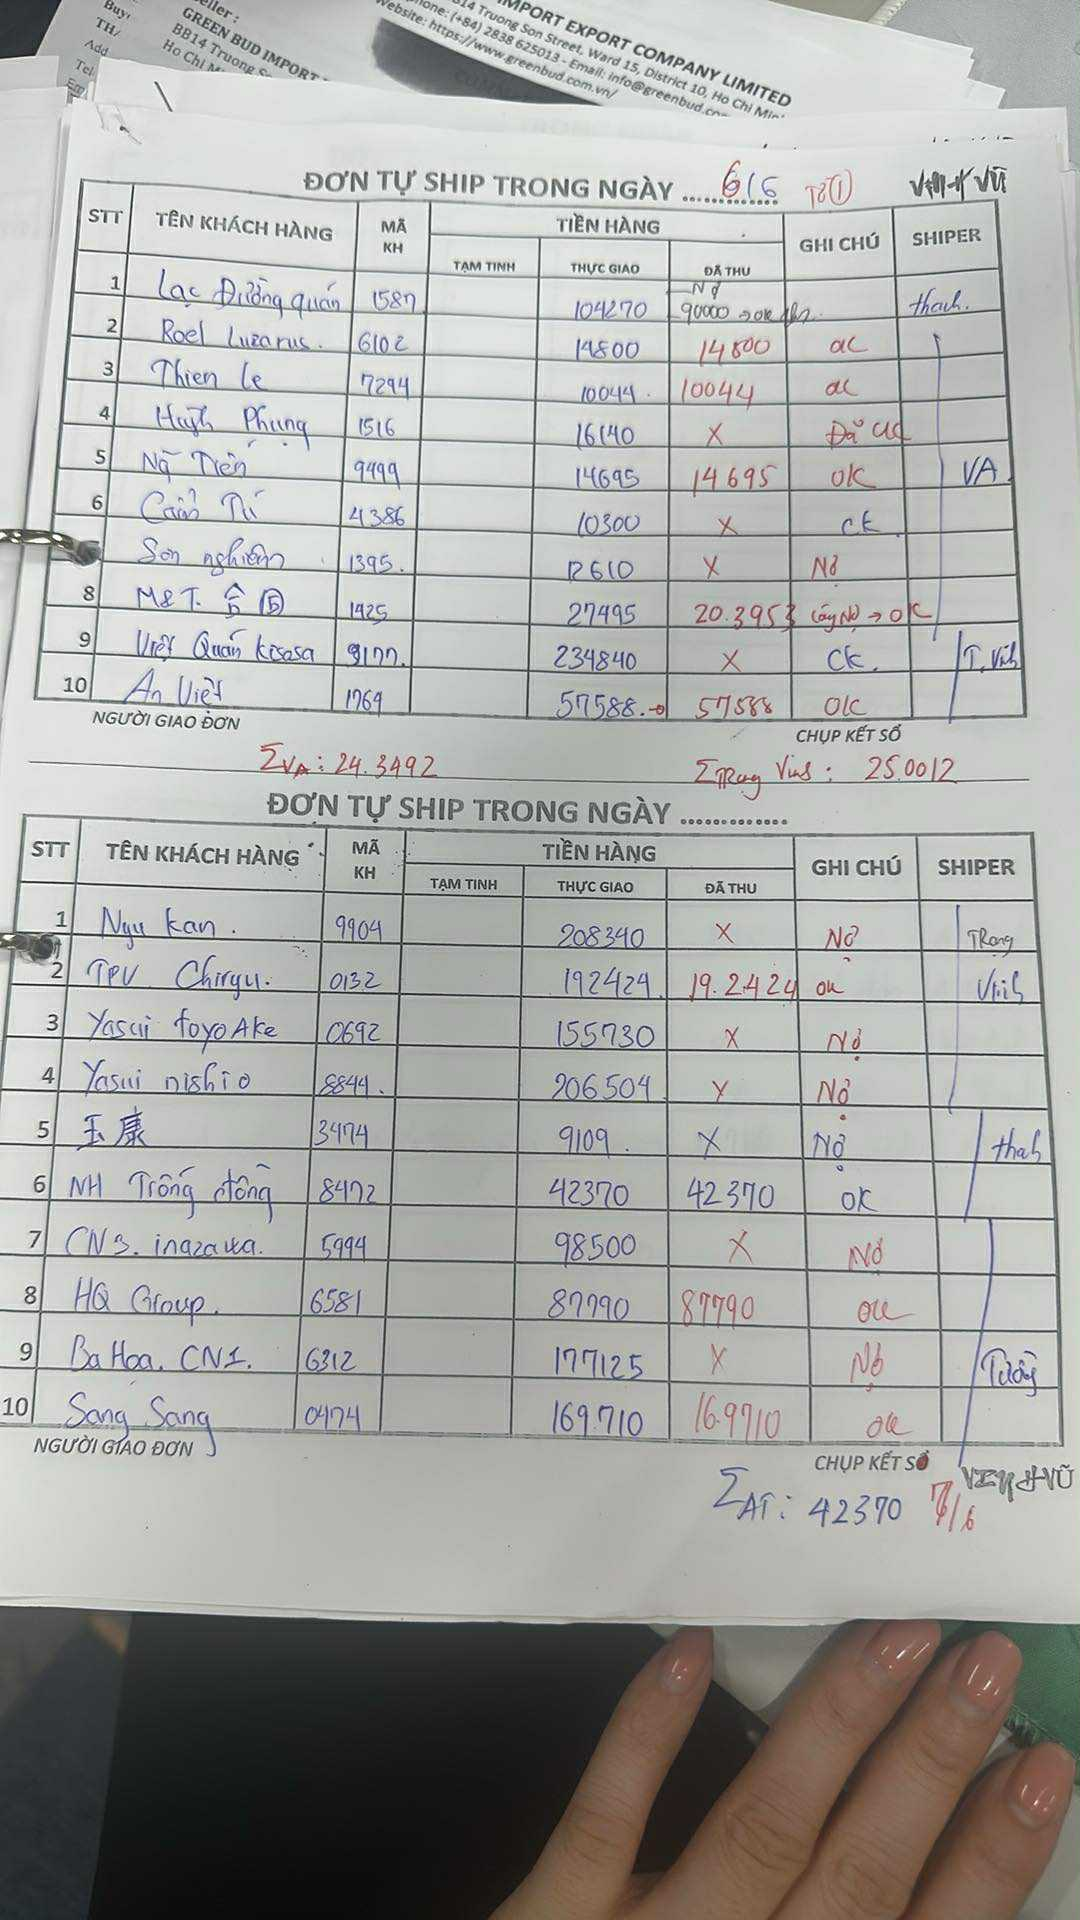 Buy
TH/
Add
Tel
Em
eller :
GREEN BUD IMPORT
BB14 Truong S
Ho Chi Mi
IMPORT EXPORT COMPANY LIMITED
14 Truong Son Street, Ward 15, District 10, Ho Chi Min
hone: (+84) 2838 625013 - Email: info@greenbud.co
Website: https://www.greenbud.com.vn/
ĐƠN TỰ SHIP TRONG NGÀY .............. 6/6 Tờ (1) VŨ
STT TÊN KHÁCH HÀNG MÃ KH TIỀN HÀNG GHI CHÚ SHIPER
TẠM TINH THỰC GIAO ĐÃ THU
1 Lạc Đường quán 1587 104270 Nợ 90000 → ok thanh.
2 Roel Luzarus. 6102 14800 14800 ok
3 Thien le 7294 10044. 10044 ok
4 Huỳh Phụng 1516 16140 X Đã ck
5 Nậ Tiến 9499 14695 14695 OK VA
6 Cẩm Tú 4386 10300 X CK
Sơn nghiêm 1395. 12610 X Nợ
8 M&T. 1425 27495 20.3953 Nợ → OK
9 Việt Quán kisasa 9177. 234840 X CK. T. Vinh
10 An Việt 1769 57588. 57588 OK
NGƯỜI GIAO ĐƠN CHỤP KẾT SỔ
ΣVA: 24.3492 ΣTrọng Vinh: 25.0012
ĐƠN TỰ SHIP TRONG NGÀY ..............
STT TÊN KHÁCH HÀNG MÃ KH TIỀN HÀNG GHI CHÚ SHIPER
TẠM TINH THỰC GIAO ĐÃ THU
1 Ngu kan. 9904 208340 X Nợ Trọng
2 TPV Chiryu. 0132 192424 19.2.424 ok Vinh
3 Yasui toyoAke 0692 155730 X Nợ
4 Yasui nishio 8844. 206504 X Nợ
5 玉康 3474 9109. X Nợ thah
6 NH Trống đồng 8472 42370 42370 OK
7 CN3. inazawa. 5994 98500 X Nợ
8 HQ Group. 6581 87790 87790 ok
9 Ba Hoa. CN1. 6312 177125 X Nợ Tường
10 Sang Sang 0474 169.710 16.9710 ok
NGƯỜI GIAO ĐƠN CHỤP KẾT SỔ VŨ
ΣAT: 42370 7/6